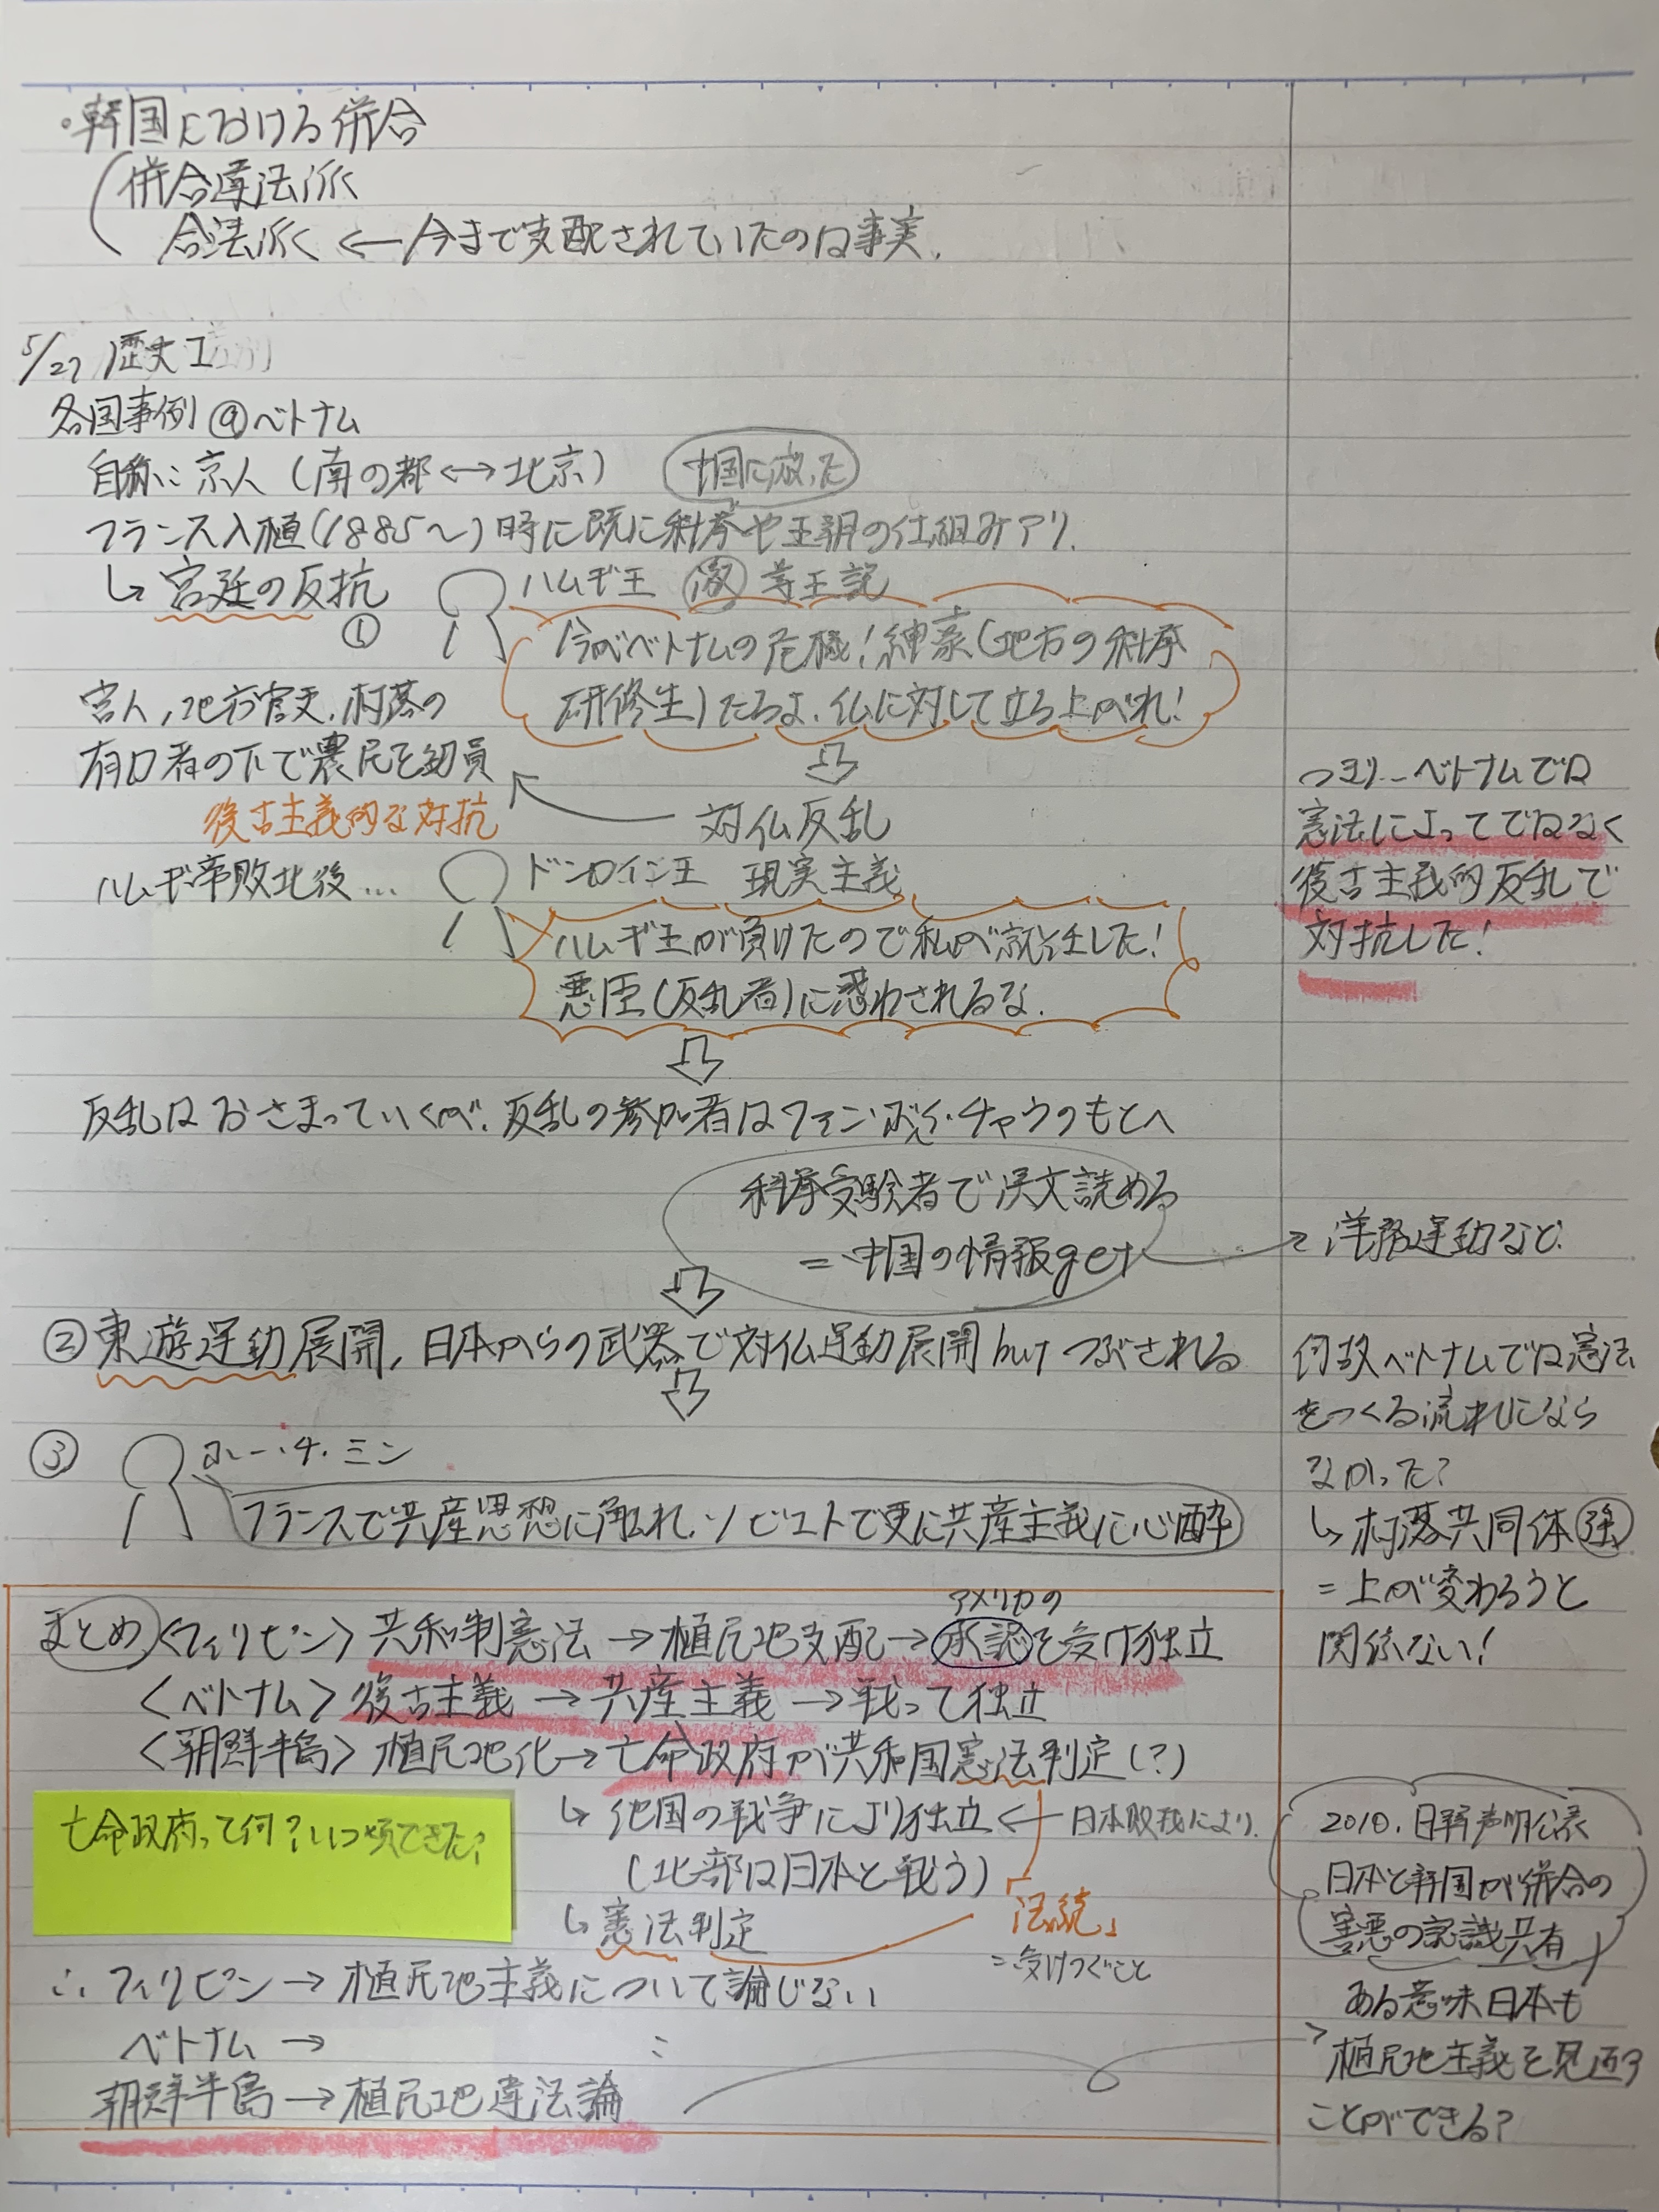 ・韓国における併合
併合違法派
合法派 ← 今まで支配されていたのは事実.
5/27 歴史I
各国事例@ベトナム
自称:京人(南の都↔北京) 中国に倣った
フランス入植(1885〜)時に既に科挙や王朝の仕組みアリ.
↳宮廷の反抗
①
ハムギ王 激 勤王記
今がベトナムの危機!紳豪(地方の科挙
研修生)たちよ、仏に対して立ち上がれ!
官人,地方官吏,村落の
有力者の下で農民を動員
復古主義的な対抗
対仏反乱
つまり…ベトナムでは
憲法によってではなく
復古主義的反乱で
対抗した!
ハムギ帝敗北後…
ドンカイン王 現実主義
ハムギ王が負けたので私が就任した!
悪臣(反乱者)に惑わされるな.
反乱はおさまっていくが、反乱の参加者はファン・ボイ・チャウのもとへ
科挙受験者で漢文読める
=中国の情報get
→洋務運動など.
②東遊運動展開,日本からの武器で対仏運動展開butつぶされる
③
ホー・チ・ミン
フランスで共産思想に触れ,ソビエトで更に共産主義に心酔
何故ベトナムでは憲法
をつくる流れになら
なかった?
↳村落共同体強
=上が変わろうと
関係ない!
アメリカの
まとめ〈フィリピン〉共和制憲法→植民地支配→承認を受け独立
〈ベトナム〉復古主義→共産主義→戦って独立
〈朝鮮半島〉植民地化→亡命政府が共和国憲法判定(?)
↳他国の戦争により独立←日本敗戦により.
(北部は日本と戦う)
↳憲法判定
「法統」
=受けつぐこと
亡命政府って何?いつ頃できた?
∴フィリピン→植民地主義について論じない
ベトナム→ 〃
朝鮮半島→植民地違法論
2010.日韓声明公表
日本と韓国が併合の
害悪の認識共有
ある意味日本も
植民地主義を見直す
ことができる?